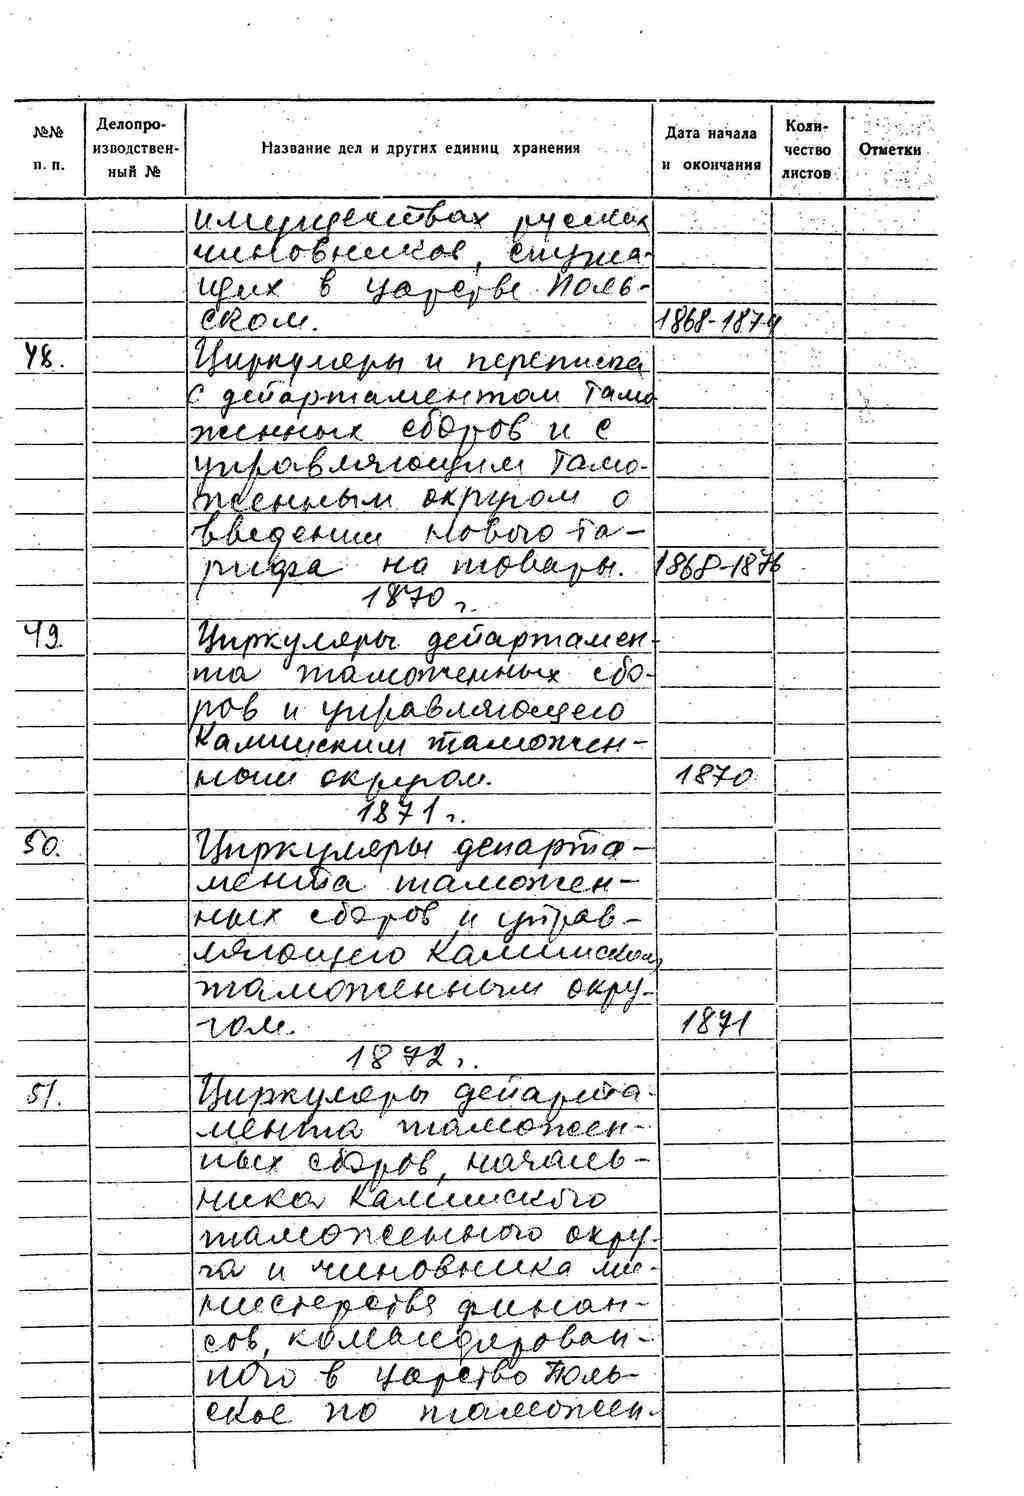 №№ п. п. Делопроизводствен-ный № Название дел и других единиц хранения Дата начала и окончания Коли-чество листов Отметки
имуществах русских
чиновников, служа-
щих в царстве Поль-
ском. 1868-1874
48. Циркуляры и переписка
с департаментом Тамо
женных сборов и с
управляющим Тамо-
женным округом о
введении нового та-
рифа на товары. 1868-1876
1870 г.
49. Циркуляры департамен-
та таможенных сбо-
ров и управляющего
Калишским таможен-
ным округом. 1870
1871 г.
50. Циркуляры департа-
мента таможен-
ных сборов и управ-
ляющего Калишским
таможенным окру-
гом. 1871
1872 г.
51. Циркуляры департа-
мента таможен-
ных сборов, началь-
ника Калишского
таможенного окру-
га и чиновника ми-
нистерства финан-
сов, командирован-
ного в царство Поль-
ское по таможен-